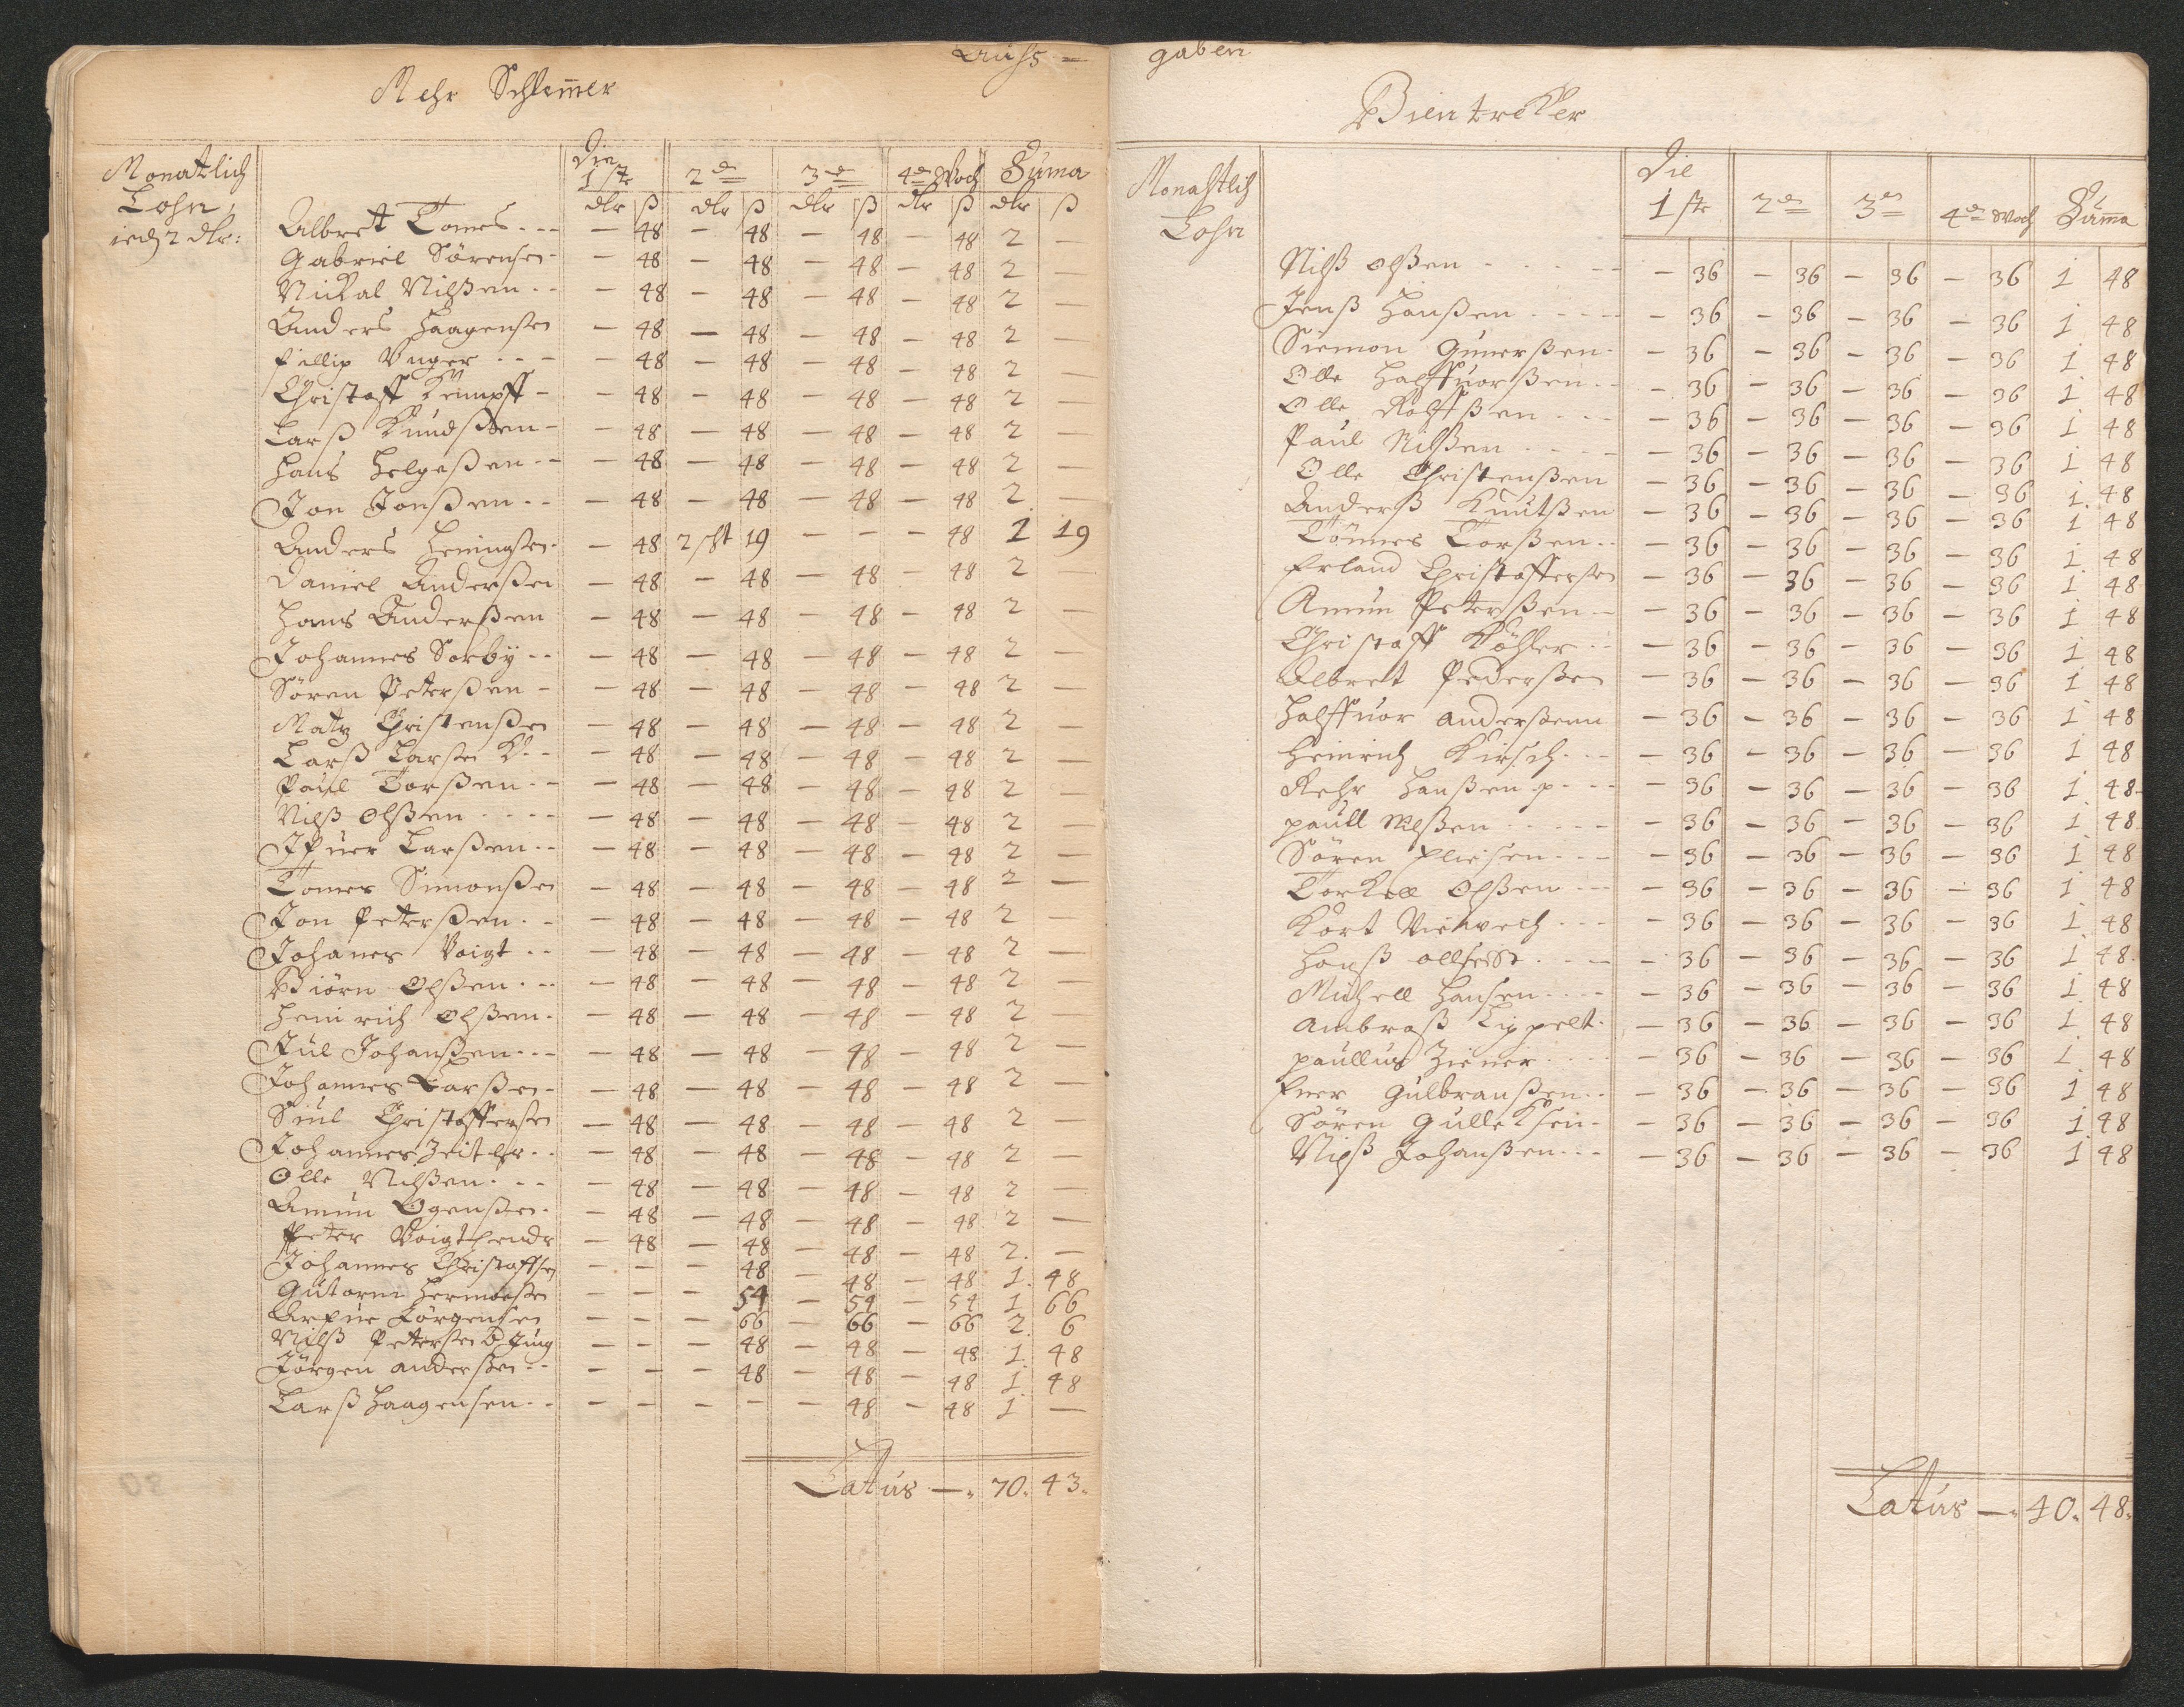 Auß-
Mehr Schlem̄er
Monatlich
Lohn
ied 2 dlr:
Die 1ste 2de 3de 4de Woch Suma
dlr ß dlr ß dlr ß dlr ß dlr ß
Albrett Tomes - - - — 48 — 48 — 48 — 48 2 —
Gabriel Sörensen - — 48 — 48 — 48 — 48 2 —
Nickal Nilßen - - — 48 — 48 — 48 — 48 2 —
Anders Haagensen — 48 — 48 — 48 — 48 2 —
Fillip Unger - - - — 48 — 48 — 48 — 48 2 —
Christoff Kempff - — 48 — 48 — 48 — 48 2 —
Larß Knudßen - — 48 — 48 — 48 — 48 2 —
Hans Helgeßen - - — 48 — 48 — 48 — 48 2 —
Jon Jonßen - - — 48 — 48 — 48 — 48 2 —
Anders Heningsen - — 48 2 scht 19 — — — 48 1 19
Daniel Anderßen — 48 — 48 — 48 — 48 2 —
Hans Anderßen — 48 — 48 — 48 — 48 2 —
Johannes Sorby - - — 48 — 48 — 48 — 48 2 —
Sören Peterßen - — 48 — 48 — 48 — 48 2 —
Matz Christenßen — 48 — 48 — 48 — 48 2 —
Larß Larsen K - - — 48 — 48 — 48 — 48 2 —
Paul Torßen - - — 48 — 48 — 48 — 48 2 —
Nilß Olßen - - - - — 48 — 48 — 48 — 48 2 —
Ifuer Larßen - - — 48 — 48 — 48 — 48 2 —
Tomes Simonßen — 48 — 48 — 48 — 48 2 —
Jon Peterßen - - — 48 — 48 — 48 — 48 2 —
Johanes Voigt - - — 48 — 48 — 48 — 48 2 —
Biörn Olßen - - - — 48 — 48 — 48 — 48 2 —
Heinrich Olßen - — 48 — 48 — 48 — 48 2 —
Jül Johanßen - - - — 48 — 48 — 48 — 48 2 —
Johannes Larßen - — 48 — 48 — 48 — 48 2 —
Siul Christoffersen — 48 — 48 — 48 — 48 2 —
Johannes Zeitler - - — 48 — 48 — 48 — 48 2 —
Olle Nilßen - - - — 48 — 48 — 48 — 48 2 —
Amun Ogenßen - — 48 — 48 — 48 — 48 2 —
Peter Voigt — 48 — 48 — 48 — 48 2 —
Johannes Christoffsen — — — 48 — 48 — 48 1 48
Gutorm Hermoeßen — — — 54 — 54 — 54 1 66
Jörgensen — — — 66 — 66 — 66 2 6
Nilß Petersen D Jung — — — 48 — 48 — 48 1 48
Jörgen Anderßen - - — — 48 — 48 — 48 1 48
Larß Haagensen - - — — — — — 48 — 48 1 —
Latus —. 70. 43.
gaben
Bientrekker
Monahtlich
Lohn
Die 1ste 2de 3de 4de Woch Sūma
Nilß Olßen - - - - — 36 — 36 — 36 — 36 1 48
Jenß Hanßen - - - - — 36 — 36 — 36 — 36 1 48
Siemon Gunerßen - — 36 — 36 — 36 — 36 1 48
Olle Halffuorßen - - — 36 — 36 — 36 — 36 1 48
Olle Rolffßen - - - — 36 — 36 — 36 — 36 1 48
Paul Nilßen - - - - — 36 — 36 — 36 — 36 1 48
Olle Christenßen — 36 — 36 — 36 — 36 1 48
Anderß Knutßen — 36 — 36 — 36 — 36 1 48
Tönnes Torßen - - — 36 — 36 — 36 — 36 1 48
Erland Christoffersen — 36 — 36 — 36 — 36 1 48
Amun Peterßen - — 36 — 36 — 36 — 36 1 48
Christoff Köhler - - — 36 — 36 — 36 — 36 1 48
Albrett Pederßen — 36 — 36 — 36 — 36 1 48
Halffuor Anderßenn — 36 — 36 — 36 — 36 1 48
Heinrich Kirsch - - - — 36 — 36 — 36 — 36 1 48
Mehr Hanßen p - - - — 36 — 36 — 36 — 36 1 48
paull Nilßen - - - - - — 36 — 36 — 36 — 36 1 48
Sören Eliesen - - - — 36 — 36 — 36 — 36 1 48
Torkell Olßen - - - — 36 — 36 — 36 — 36 1 48
Kort Viehwech - - - — 36 — 36 — 36 — 36 1 48
Hanß - - - — 36 — 36 — 36 — 36 1 48
Michell Hansen - - - - — 36 — 36 — 36 — 36 1 48
Ambroß Lippelt - — 36 — 36 — 36 — 36 1 48
paullus Ziener - - - - — 36 — 36 — 36 — 36 1 48
Gulbranßen - - — 36 — 36 — 36 — 36 1 48
Sören Gulleksen - — 36 — 36 — 36 — 36 1 48
Nilß Johanßen - - - — 36 — 36 — 36 — 36 1 48
Latus —. 40. 48.